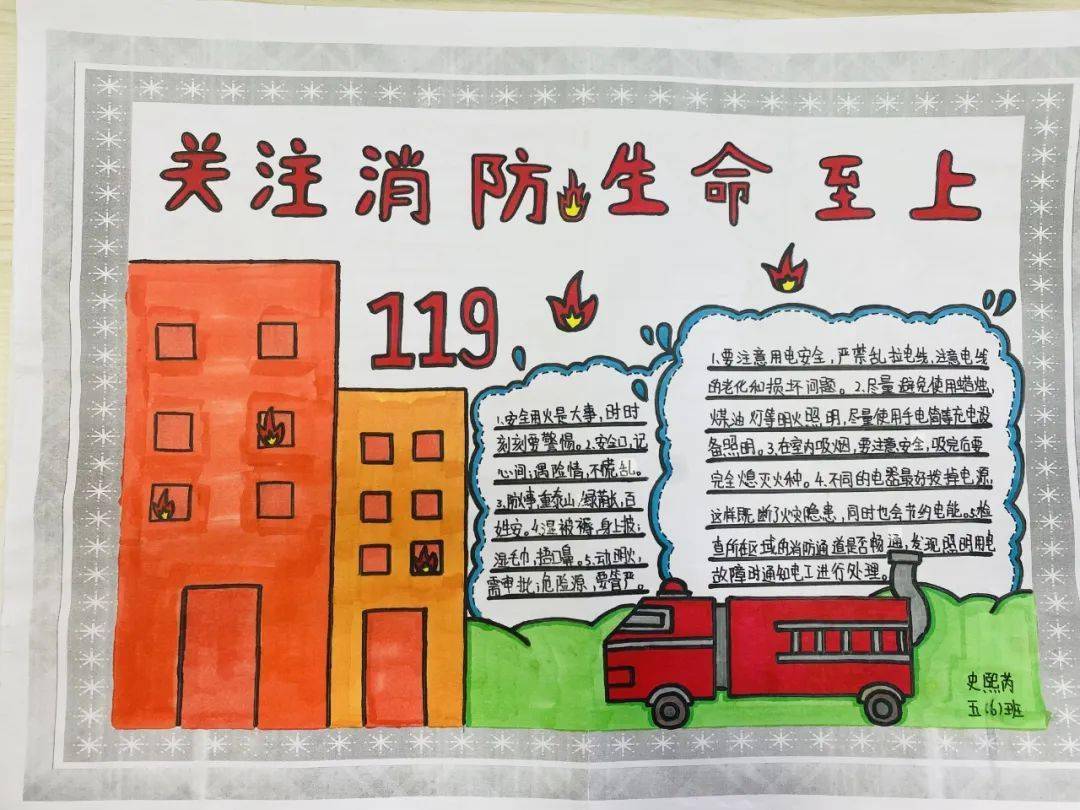 关注消防生命至上
119
1.安全用火是大事,时时
刻刻要警惕。2.安全口,记
心间;遇险情,不慌乱。
3.防火事,重泰山/绿莆长,百
姓安。4.湿被褥,身上披;
湿毛巾,捂口鼻。5.动明火,
需审批;危险源,要管严。
1.要注意用电安全,严禁乱拉电线,注意电线
的老化和损坏问题。2.尽量避免使用蜡烛,
煤油灯等明火照明,尽量使用手电筒等充电设
备照明。3.在室内吸烟,要注意安全,吸完后要
完全熄灭火种。4.不同的电器最好拨掉电源,
这样既断了火灾隐患,同时也会节约电能。5.检
查所在区域的消防通道是否畅通,发现照明用电
故障时通知电工进行处理。
史熙芮
五(6)班